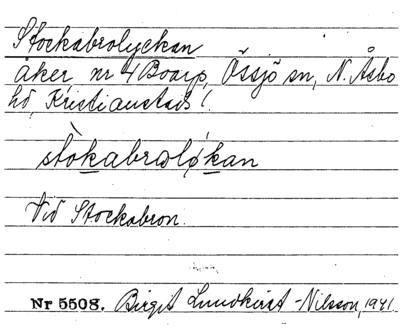 Stockabrolyckan
åker nr 4 Boarp, Össjö sn, N. Åsbo
hd, Kristianstads l.
stòkabrωlǿkan
Vid Stockabron.
Nr 5508. Birgit Lundkvist-Nilsson, 1941.